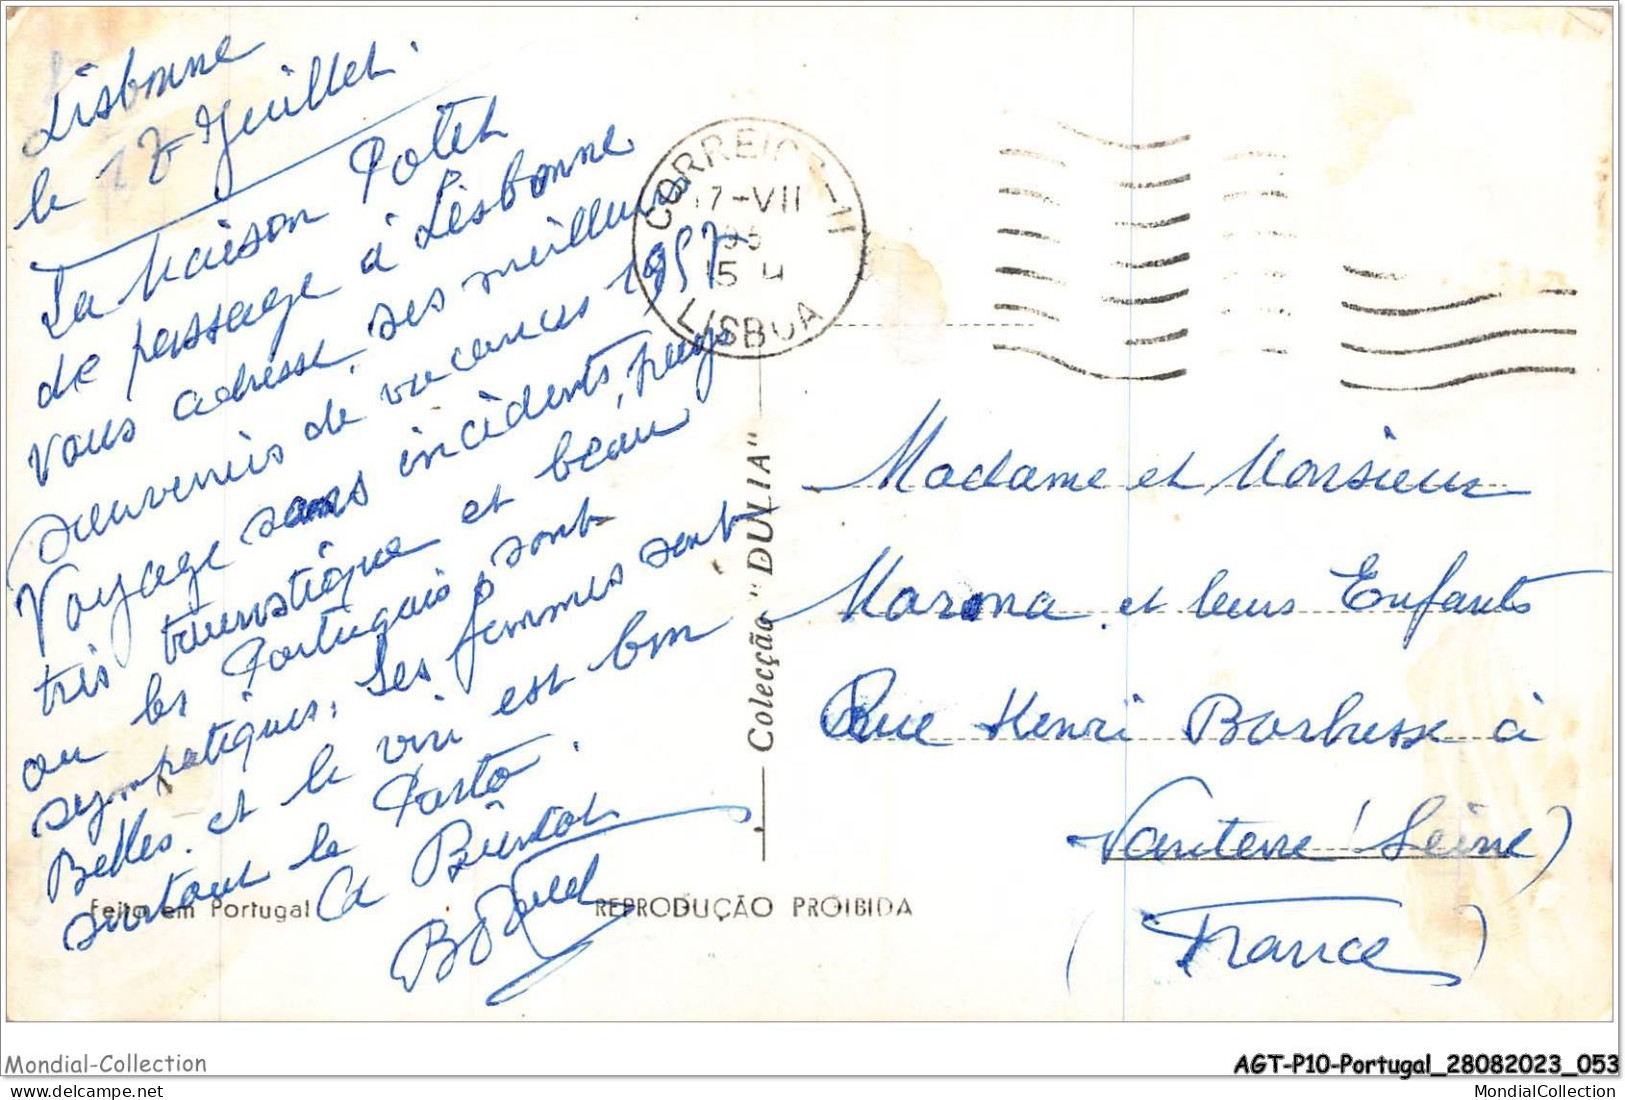 Lisbonne
le 17 Juillet.
La Maison Potel
de passage à Lisbonne
vous adresse ses meilleurs
souvenirs de vacances 1957
Voyage sans incidents, pays
très touristique et beau
ou les Portugais sont
sympatiques. Les femmes sont
Belles. et le vin est bon
surtout le Porto.
a Bientot
CORREIOS-11
17-VII
195
15 H
LISBOA
Colecção "DULIA"
Madame et Monsieur
et leurs Enfants
Rue Henri Barbusse à
Nanterre (Seine)
(France)
Feito em Portugal
REPRODUÇÃO PROIBIDA
Mondial-Collection
AGT-P10-Portugal_28082023_053
MondialCollection